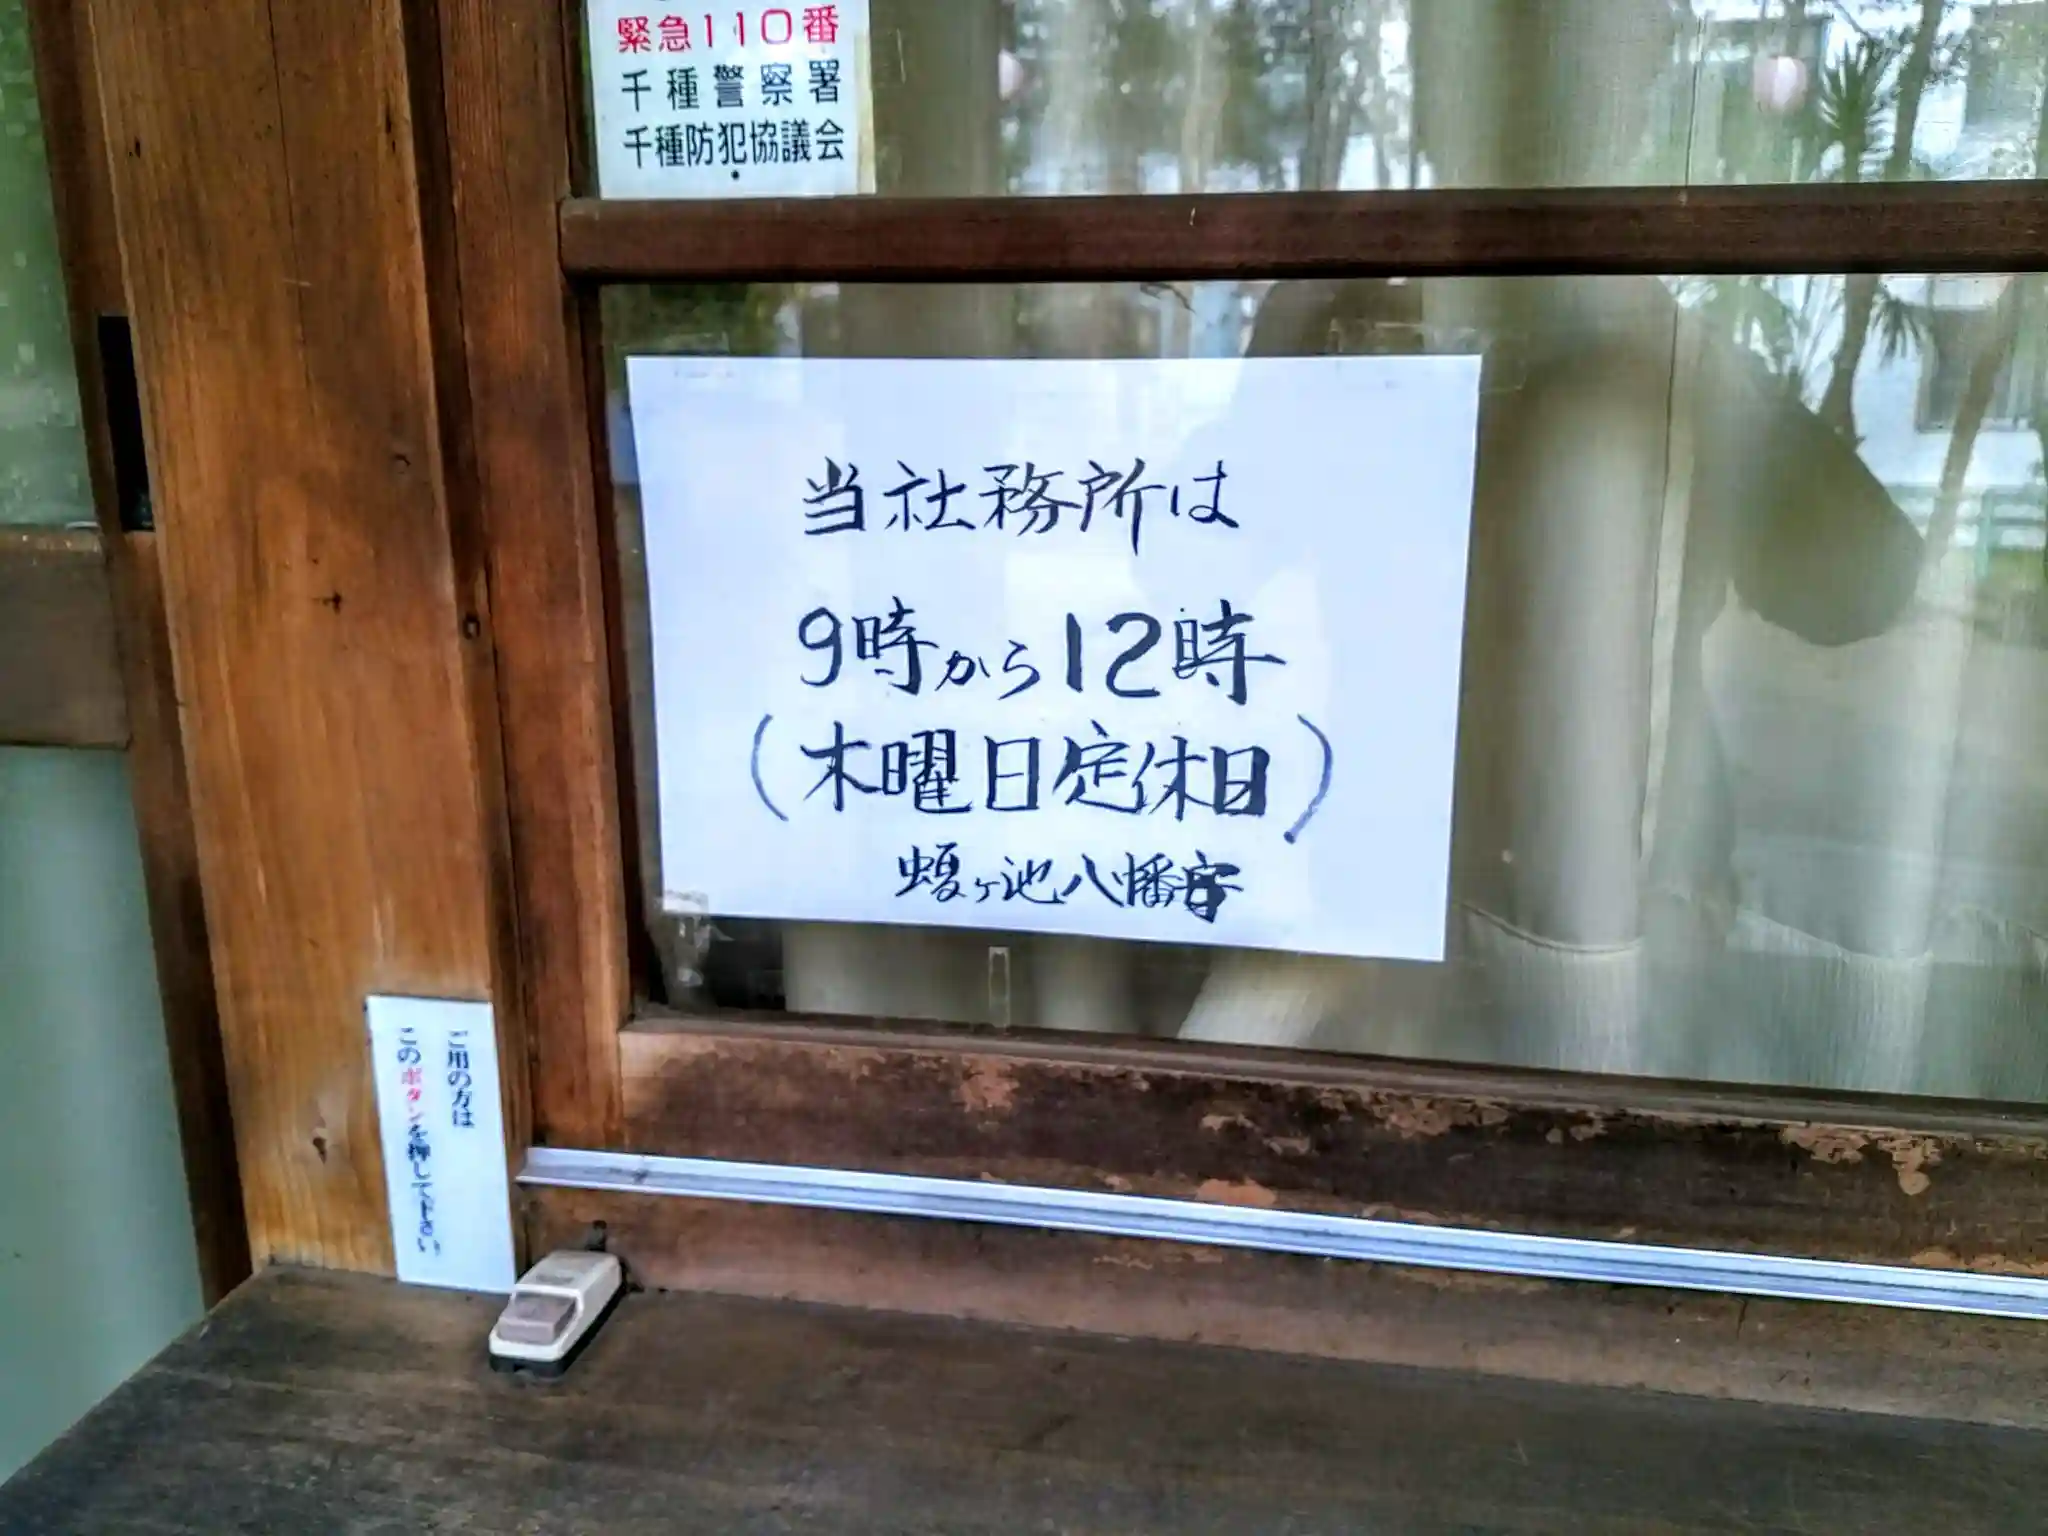 緊急110番
千種警察署
千種防犯協議会
当社務所は
9時から12時
(木曜日定休日)
蝮ヶ池八幡宮
ご用の方は
このボタンを押して下さい